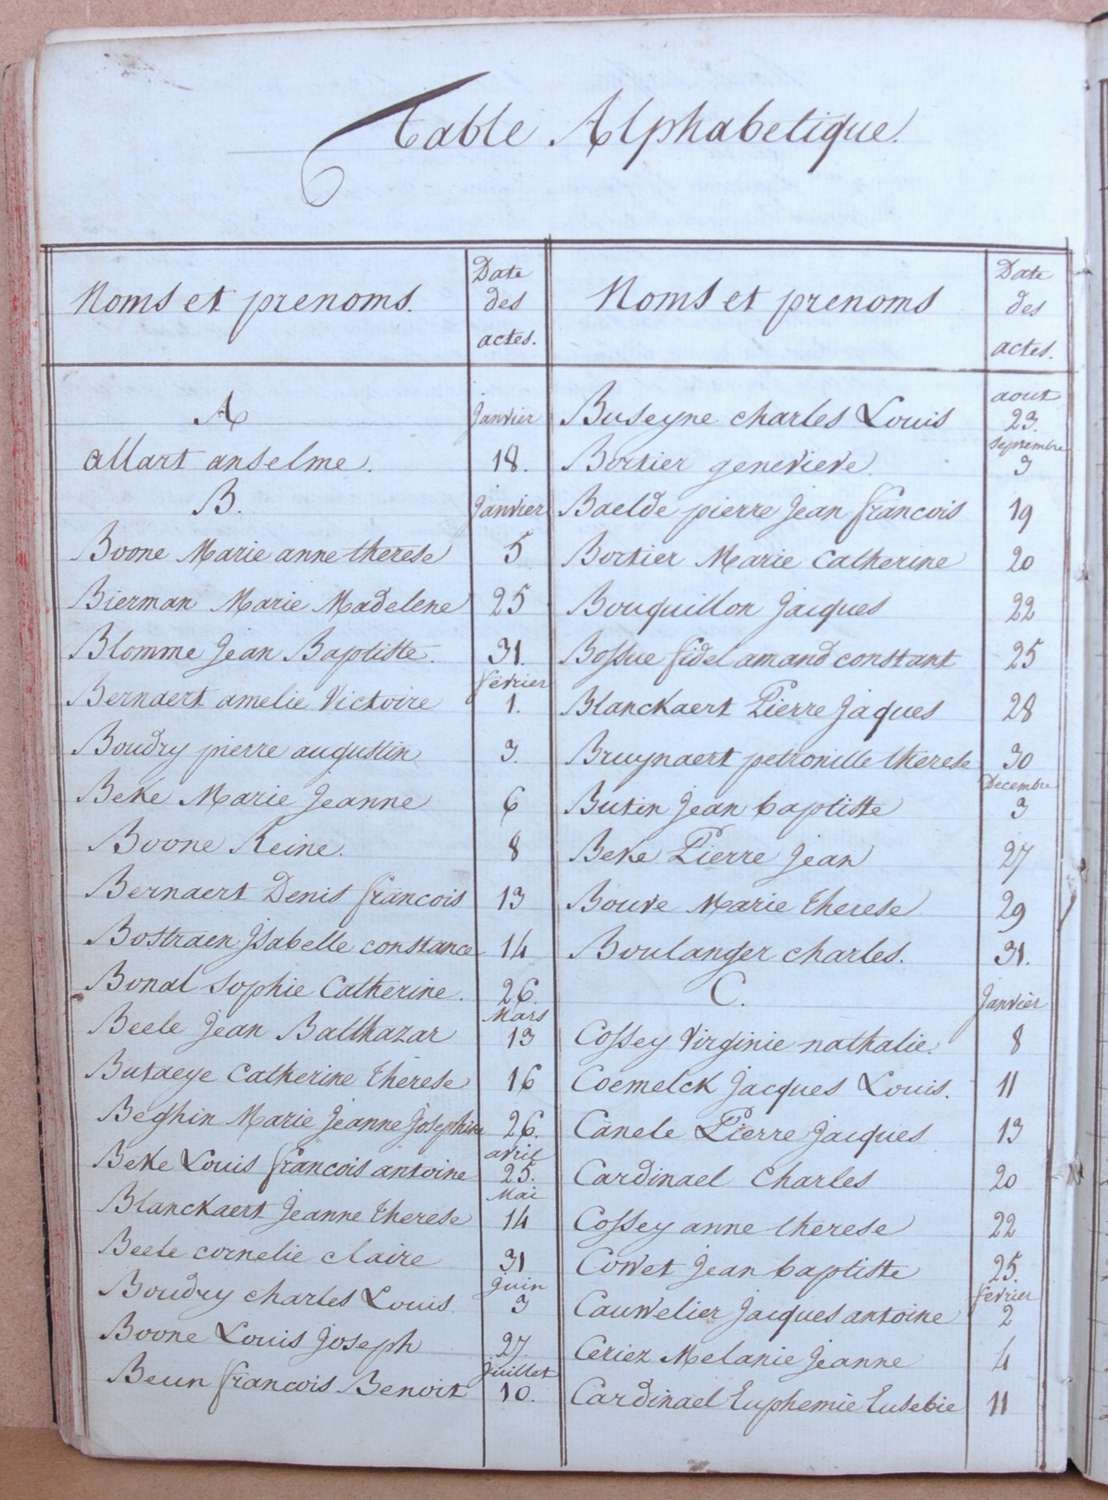 Table Alphabetique.
Noms et prenoms.
Date des actes.
A
Janvier
allart anselme. 18.
B.
Janvier
Boone Marie anne therese 5
Bierman Marie Madelene 25
Blomme Jean Baptiste. 31.
fevrier
Bernaert amelie Victoire 1.
Boudry pierre augustin 3.
Beke Marie Jeanne 6
Boone Reine. 8
Bernaert Denis francois 13
Bostraen Jsabelle constance 14
Bonal Sophie Catherine. 26.
Mars
Beele Jean Balthazar 13
Butaeye Catherine Therese 16
Beghin Marie Jeanne Josephine 26.
avril
Beke Louis francois antoine 25.
Mai
Blanckaert Jeanne Therese 14
Beele cornelie claire 31
Juin
Boudry charles Louis. 3
Boone Louis Joseph 27
Juillet
Beun francois Benoit 10.
Noms et prenoms
Date des actes.
aout
Buseyne charles Louis 23.
Septembre
Bortier genevieve. 3
Baelde pierre Jean francois 19
Bortier Marie Catherine 20
Bouquillon Jacques 22
Bossue fidel amand constant 25
Blanckaert Pierre Jaques 28
Bruynaert petronille therese 30
Decembre
Butin Jean baptiste 3
Beke Pierre Jean 27
Bouve Marie Therese 29
Boulanger charles. 31.
C.
Janvier
Cossey Virginie nathalie. 8
Coemelck Jacques Louis. 11
Canele Pierre Jacques 13
Cardinael Charles 20
Cossey anne therese 22
Cowet Jean baptiste 25.
fevrier
Cauwelier Jacques antoine 2
Ceriez Melanie Jeanne 4
Cardinael Euphemie Eusebie 11